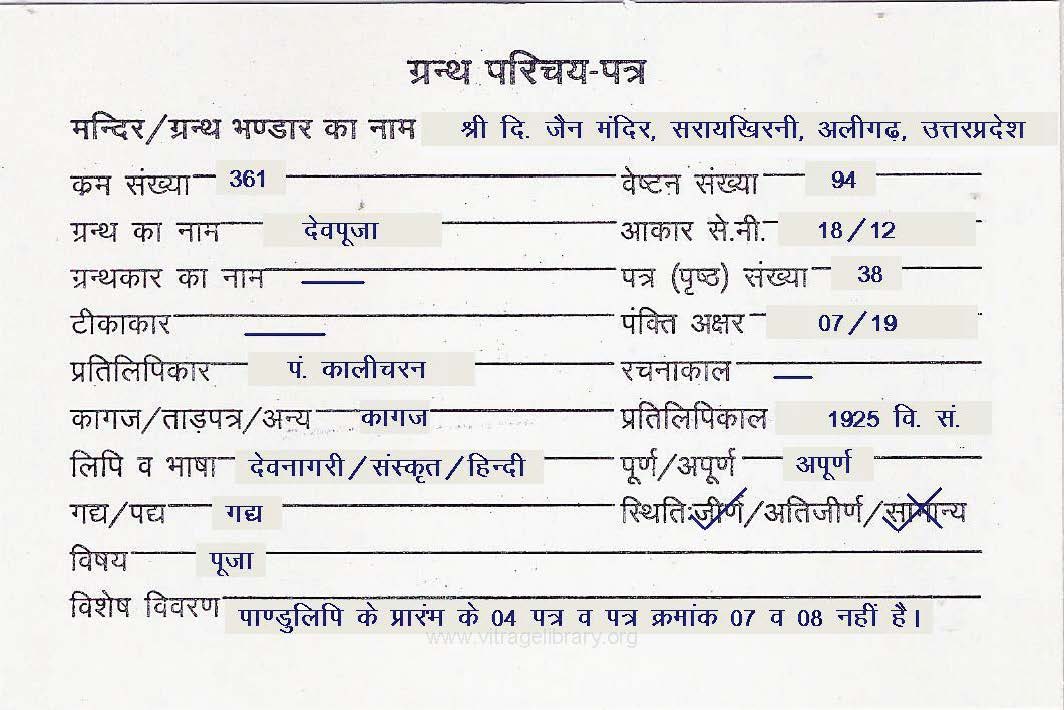 ग्रन्थ परिचय-पत्र
मन्दिर/ग्रन्थ भण्डार का नाम श्री दि. जैन मंदिर, सरायखिरनी, अलीगढ़, उत्तरप्रदेश
क्रम संख्या 361 वेष्टन संख्या 94
ग्रन्थ का नाम देवपूजा आकार से.मी. 18/12
ग्रन्थकार का नाम — पत्र (पृष्ठ) संख्या 38
टीकाकार — पंक्ति अक्षर 07/19
प्रतिलिपिकार पं. कालीचरन रचनाकाल —
कागज/ताड़पत्र/अन्य कागज प्रतिलिपिकाल 1925 वि. सं.
लिपि व भाषा देवनागरी/संस्कृत/हिन्दी पूर्ण/अपूर्ण अपूर्ण
गद्य/पद्य गद्य स्थितिःजीर्ण/अतिजीर्ण/सामान्य
विषय पूजा
विशेष विवरण पाण्डुलिपि के प्रारंभ के 04 पत्र व पत्र क्रमांक 07 व 08 नहीं है।
www.vitragelibrary.org